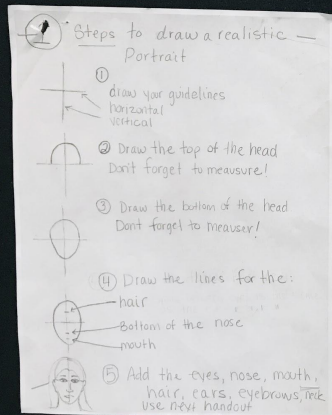 Steps to draw a realistic —
Portrait
① draw your guidelines
horizontal
vertical
② Draw the top of the head
Don't forget to meausure!
③ Draw the bottom of the head
Dont forget to meauser!
④ Draw the lines for the:
hair
Bottom of the nose
mouth
⑤ Add the eyes, nose, mouth,
hair, ears, eyebrows, neck
use next handout